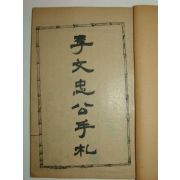 李文忠公手札